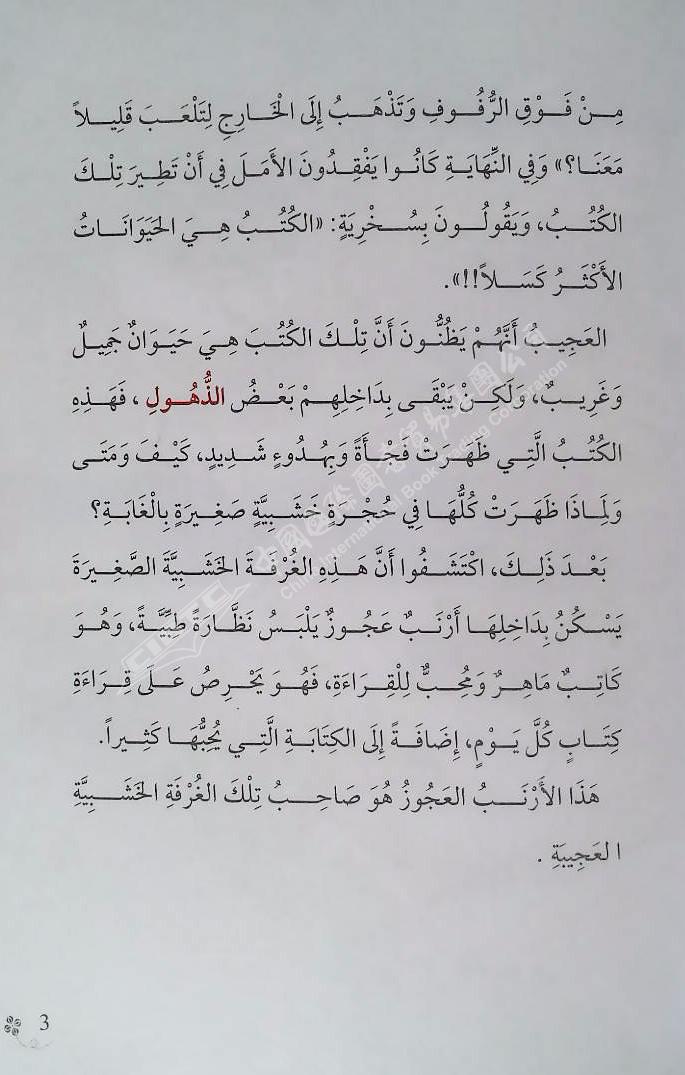 مِنْ فَوْقِ الرُّفُوفِ وَتَذْهَبُ إِلَى الْخَارِجِ لِتَلْعَبَ قَلِيلاً
مَعَنَا؟» وَفِي النِّهَايَةِ كَانُوا يَفْقِدُونَ الأَمَلَ فِي أَنْ تَطِيرَ تِلْكَ
الكُتُبُ، وَيَقُولُونَ بِسُخْرِيَةٍ: «الكُتُبُ هِيَ الحَيَوَانَاتُ
الأَكْثَرُ كَسَلاً!!».
العَجِيبُ أَنَّهُمْ يَظُنُّونَ أَنَّ تِلْكَ الكُتُبَ هِيَ حَيَوَانٌ جَمِيلٌ
وَغَرِيبٌ، وَلَكِنْ يَبْقَى بِدَاخِلِهِمْ بَعْضُ الذُّهُولِ، فَهَذِهِ
الكُتُبُ الَّتِي ظَهَرَتْ فَجْأَةً وَبِهُدُوءٍ شَدِيدٍ، كَيْفَ وَمَتَى
وَلِمَاذَا ظَهَرَتْ كُلُّهَا فِي حُجْرَةٍ خَشَبِيَّةٍ صَغِيرَةٍ بِالْغَابَةِ؟
بَعْدَ ذَلِكَ، اكْتَشَفُوا أَنَّ هَذِهِ الغُرْفَةَ الخَشَبِيَّةَ الصَّغِيرَةَ
يَسْكُنُ بِدَاخِلِهَا أَرْنَبٌ عَجُوزٌ يَلْبَسُ نَظَّارَةً طِبِّيَّةً، وَهُوَ
كَاتِبٌ مَاهِرٌ وَمُحِبٌّ لِلْقِرَاءَةِ، فَهُوَ يَحْرِصُ عَلَى قِرَاءَةِ
كِتَابٍ كُلَّ يَوْمٍ، إِضَافَةً إِلَى الكِتَابَةِ الَّتِي يُحِبُّهَا كَثِيراً.
هَذَا الأَرْنَبُ العَجُوزُ هُوَ صَاحِبُ تِلْكَ الغُرْفَةِ الخَشَبِيَّةِ
العَجِيبَةِ.
3
中國國際圖書貿易集團公司
China International Book Trading Corporation